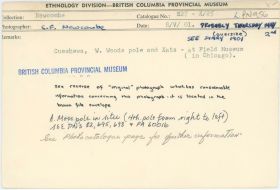 ETHNOLOGY DIVISION - BRITISH COLUMBIA PROVINCIAL MUSEUM
Collection: Newcombe
Catalogue No.:
Photographer: C.F. Newcombe
Date: 8/9/01. PROBABLY THURSDAY
SEE DIARY 1901
Cumshewa, W. Woods pole and Xats - at Field Museum
(in Chicago).
BRITISH COLUMBIA PROVINCIAL MUSEUM
See reverse of "original" photograph which contains considerable
information concerning this photograph. it is located in the
brown file envelope
A. Moss pole in situ (4th pole from right to left)
SEE PN'S 82, 695, 698 & PN 60010
See Photo catalogue page for further information